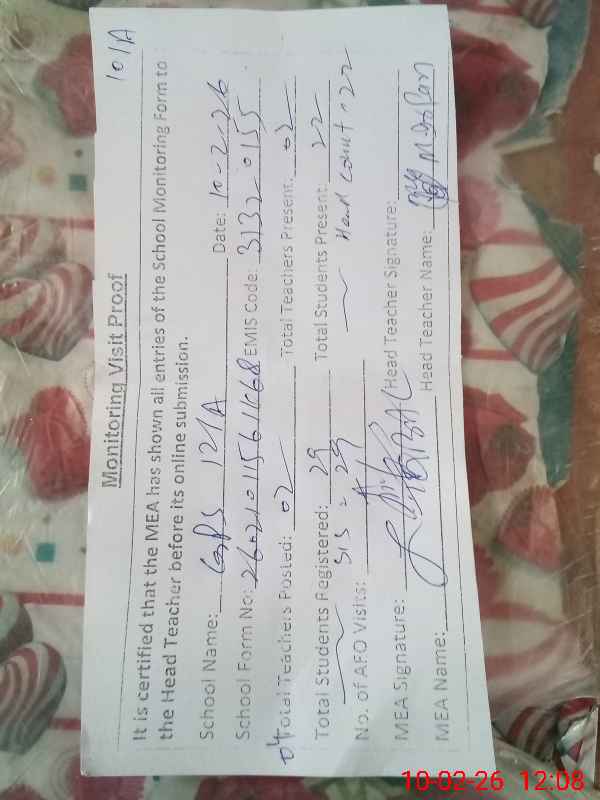 101A
Monitoring Visit Proof
It is certified that the MEA has shown all entries of the School Monitoring Form to
the Head Teacher before its online submission.
School Name: GPS 121A Date: 10-2-26
School Form No: EMIS Code: 31320155
04 Total Teachers Posted: 02 Total Teachers Present: 02
Total Students Registered: 29 Total Students Present: 22
SIS = 29 Head Count = 22
No. of AFO Visits:
MEA Signature: Head Teacher Signature:
MEA Name: Head Teacher Name:
10-02-26 12:08